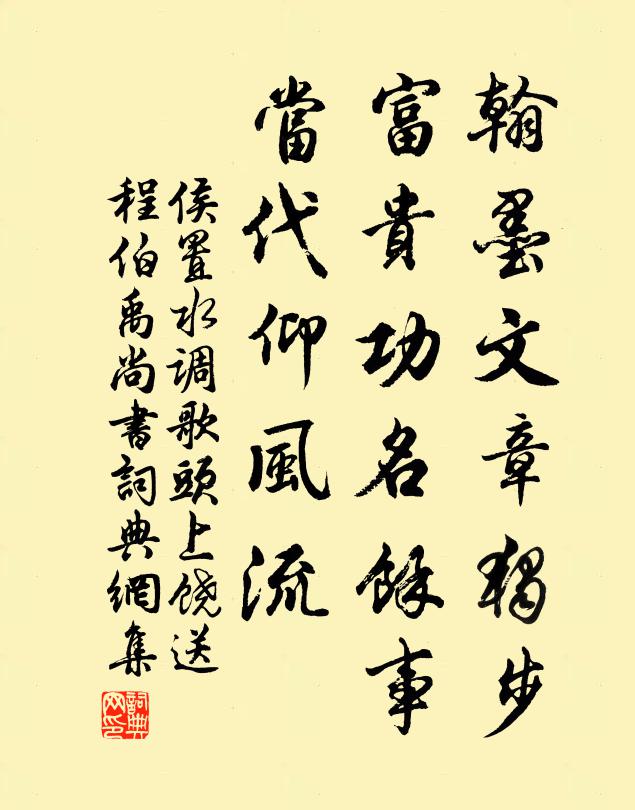 翰墨文章獨步
富貴功名餘事
當代仰風流
侯置水调歌頭上饶送
程伯禹尚書詞典網集
詞典
网印